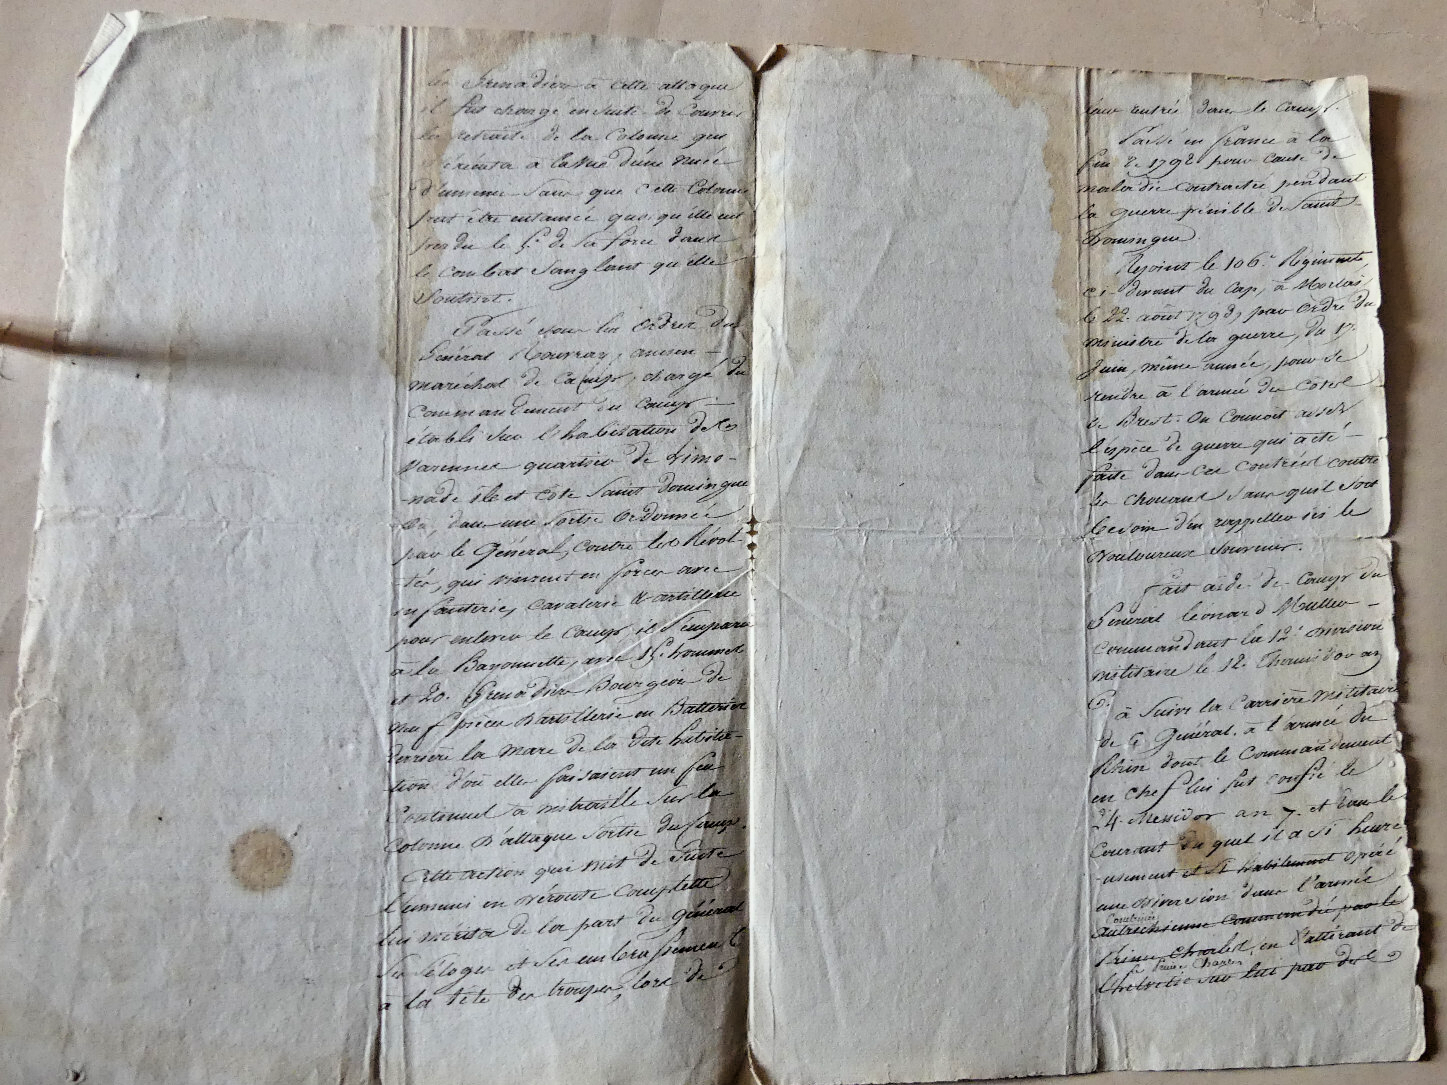 de Grenadiers à cette attaque
il fut chargé ensuite de Couvrir
la retraite de la Colonne qui
s'éxécuta à la vue d'une nuée
d'ennemis sans que cette Colonne
put être entamée quoiqu'elle eut
perdu le de sa force dans
le combat Sanglant qu'elle
Soutint.
Passé sous les Ordres du
Général Rouvray, ancien
maréchal de Camp, chargé du
Commandement du Camp
établi sur l'habitation de
Varennes quartier de Limo-
-nade île et Côte Saint domingue
Où, dans une Sortie Ordonnée
par le Général, contre les Révol-
-tés, qui vinrent en forces avec
infanterie, Cavalerie & artillerie
pour enlever le Camp, il s'empara
à la Bayonnette, avec 15 hommes
et 20. Grenadiers Bourgeois de
neuf pièces d'artillerie en Batteries
derrière la mare de la dite habita-
tion, d'où elles faisaient un feu
Continuel à mitraille sur la
Colonne d'attaque Sortie du Camp.
Cette action qui mit de Suite
l'ennemi en déroute Complette
lui mérita de la part du général
Ses éloges et Ses embrassements
à la tête des troupes, lors de
leur entrée dans le Camp.
Passé en france à la
fin de 1792 pour Cause de
maladie Contractée pendant
la guerre pénible de Saint-
Domingue.
Rejoint le 106.e Régiment
Ci-devant du Cap, à Morlaix,
le 22. août 1793, par Ordre du
ministre de la guerre, du 17.
Juin, même année, pour se
rendre à l'armée des Côtes
de Brest. On Connoit assez
l'espèce de guerre qui a été
faite dans ces Contrées contre
les chouans sans qu'il soit
besoin d'en rappeller ici le
douloureux Souvenir.
Fait aide-de-Camp du
Général léonard Muller
Commandant la 12.e division
militaire le 12. Thermidor an
6.
à Suivi la Carrière militaire
de Ce Général, à l'armée du
Rhin dont le Commandement
en chef lui fut confié le
14 Messidor an 7. et dans le
Courant du quel il a si heure-
-usement et si habilement opéré
une diversion dans l'armée
autrichienne Commandée par le
Prince Charles, en l'attirant de
le Prince Charles,
l'helvétie sur lui par des